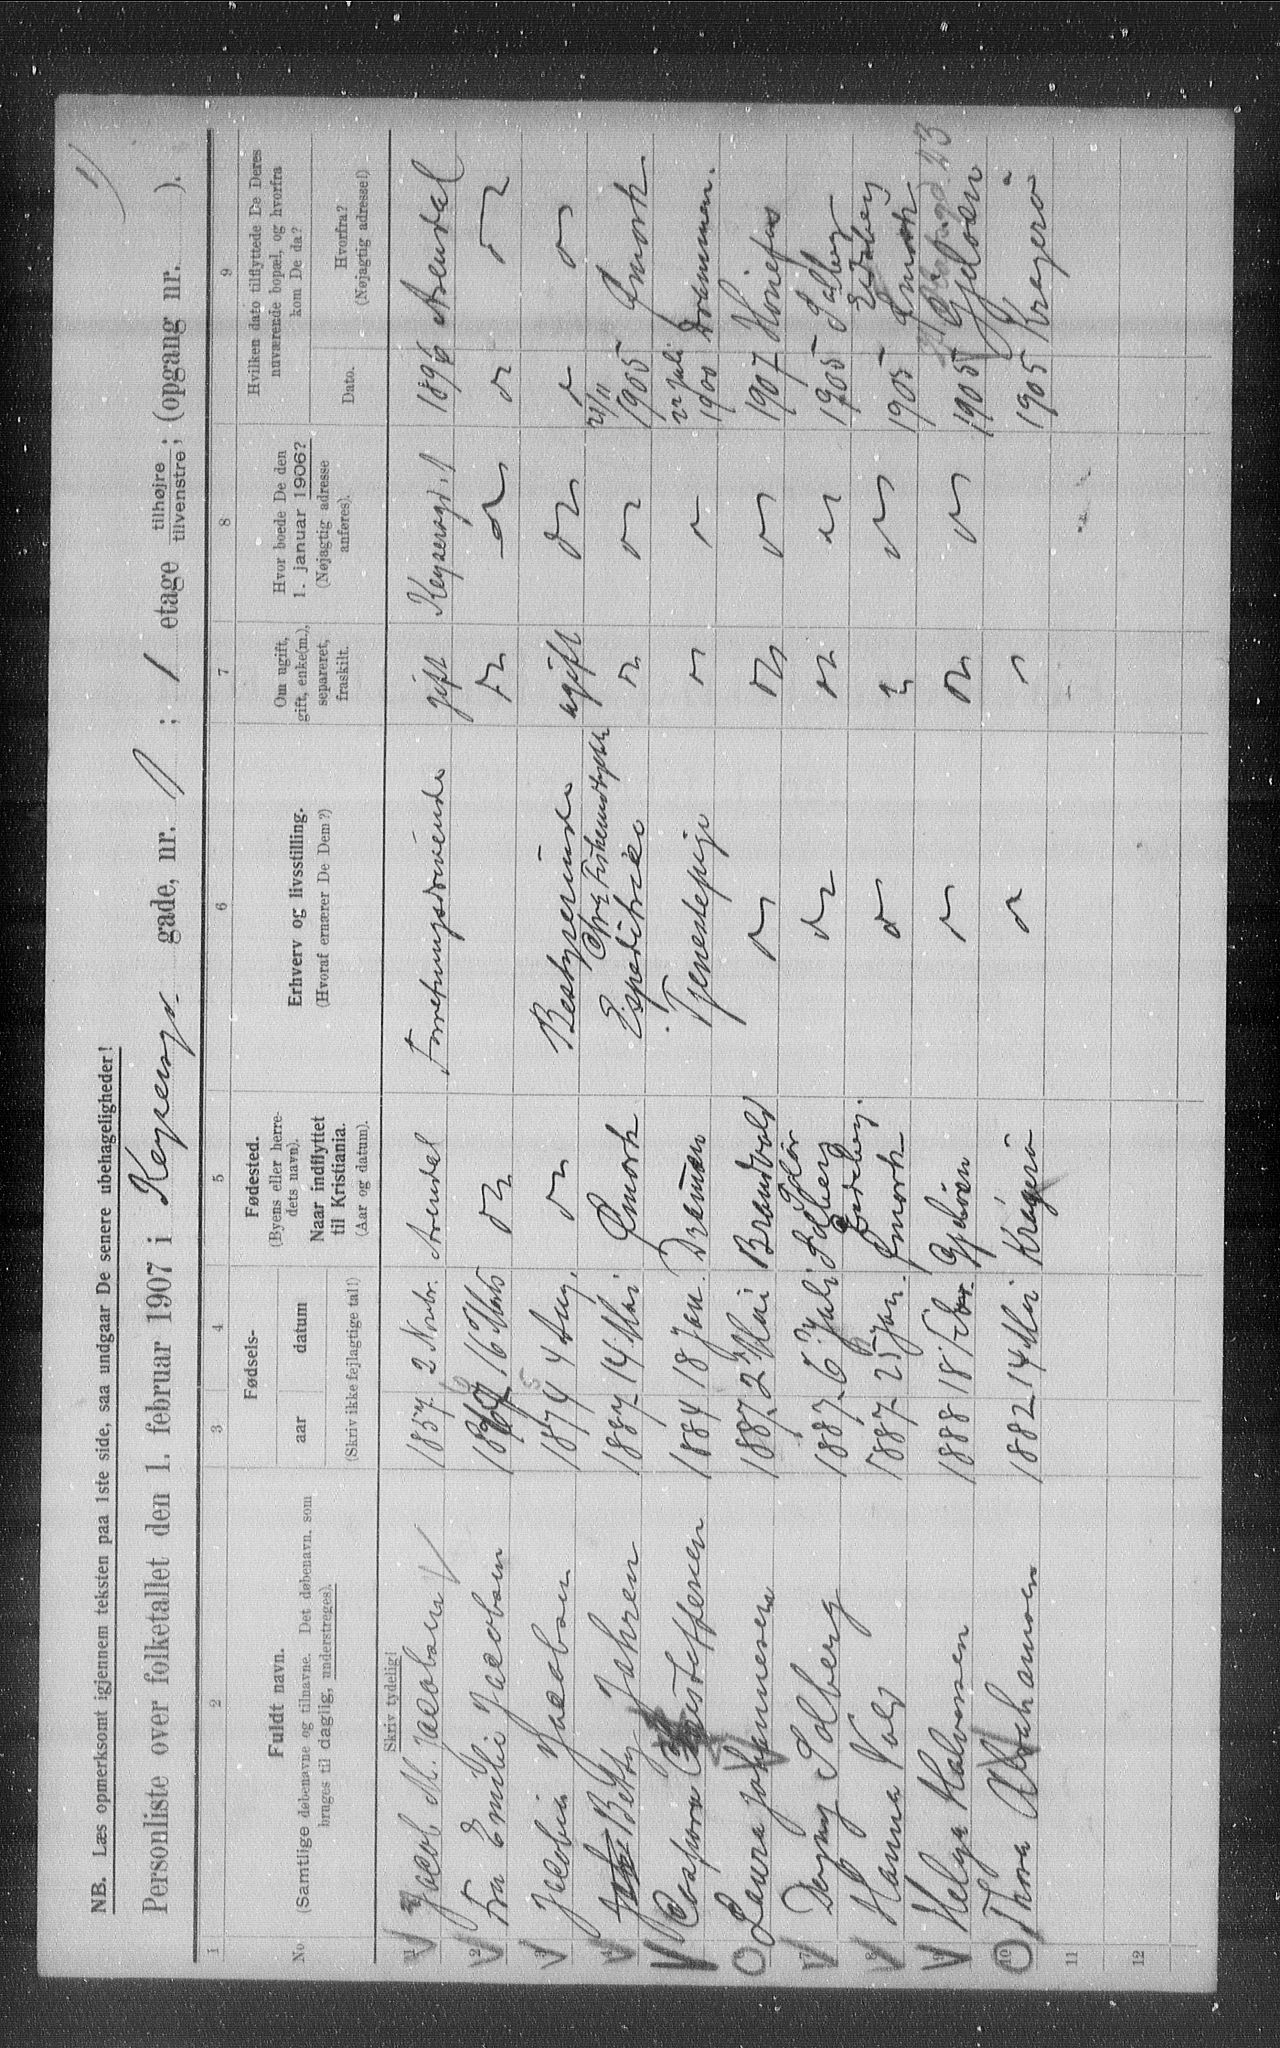 NB. Læs opmerksomt igjennem teksten paa 1ste side, saa undgaar De senere ubehageligheder!
Personliste over folketallet den 1. februar 1907 i Keysersgt. gade, nr. 1; 1 etage tilhøjre / tilvenstre; (opgang nr. ).
1 2 3 4 5 6 7 8 9
No.
Fuldt navn.
(Samtlige døbenavne og tilnavne. Det døbenavn, som
bruges til daglig, understreges).
Fødsels-
aar datum
(Skriv ikke fejlagtige tal!)
Fødested.
(Byens eller herre-
dets navn).
Naar indflyttet
til Kristiania.
(Aar og datum).
Erhverv og livsstilling.
(Hvoraf ernærer De Dem?)
Om ugift,
gift, enke(m.),
separeret,
fraskilt.
Hvor boede De den
1. januar 1906?
(Nøjagtig adresse
anføres).
Hvilken dato tilflyttede De Deres
nuværende bopæl, og hvorfra
kom De da?
Dato.
Hvorfra?
(Nøjagtig adresse!)
Skriv tydelig!
1 Jacob M. Jacobsen 1857 2 Novbr. Arendal Forretningsdrivende gift Keysersgt. 1 1896 Arendal
2 Fru Emilie Jacobsen 16 Marts do do do do do
3 Jacobin Jacobsen 1874 4 Aug. do Bestyrerinde ugift do do
4 Betty Jahren 1887 14 Mai Ømark Expeditrice do do 21/11 1905 Ømark
5 Caspara Christoffersen 1884 18 Jan. Drammen Tjenestepige 22 Juli 1900 Drammen.
6 Laura Johannesen 1887 2 Mai Brandvold do do 1907 Hønefos
7 Dagny Solberg 1887 6 Juli Solør do do 1905 Solberg Eidsberg
8 Hanna Vold 1887 25 Jan. Ømark 1905 Ømark
9 Helga Halvorsen 1888 18 Febr. Gjdøen do 1905
10 Thora Abrahamsen 1882 14 Mai Kragerø 1905 Kragerø
11
12